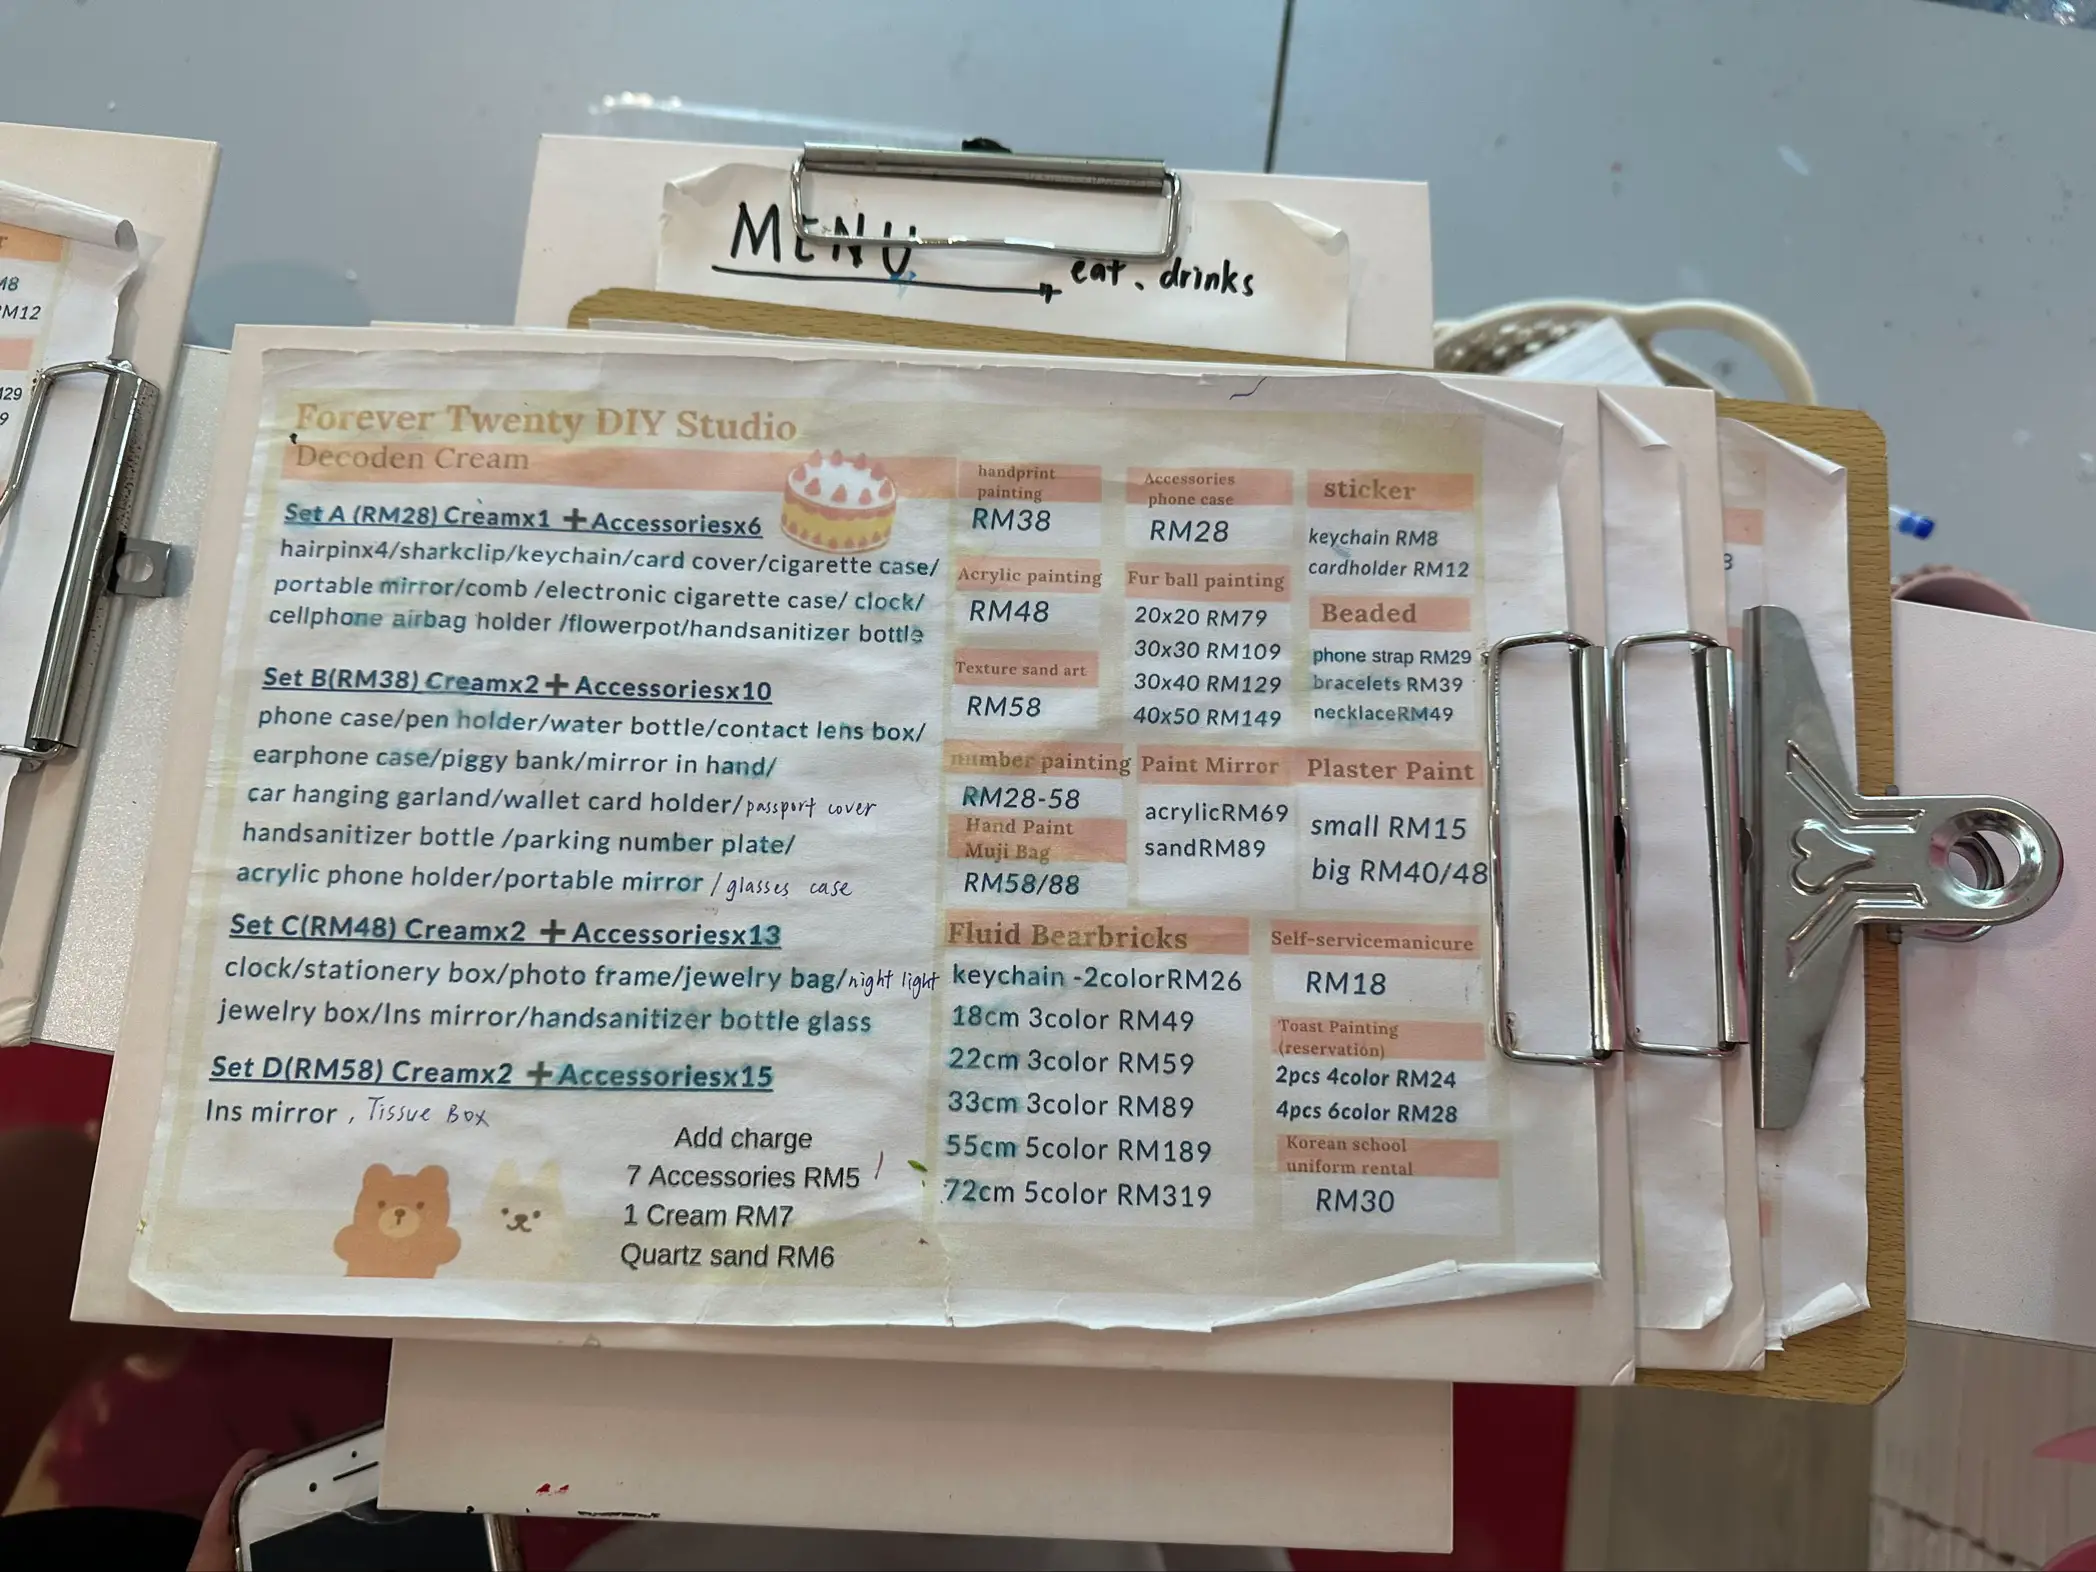 MENU
eat. drinks
Forever Twenty DIY Studio
Decoden Cream
Set A (RM28) Creamx1 ➕Accessoriesx6
hairpinx4/sharkclip/keychain/card cover/cigarette case/
portable mirror/comb /electronic cigarette case/ clock/
cellphone airbag holder /flowerpot/handsanitizer bottle
Set B(RM38) Creamx2➕Accessoriesx10
phone case/pen holder/water bottle/contact lens box/
earphone case/piggy bank/mirror in hand/
car hanging garland/wallet card holder/passport cover
handsanitizer bottle /parking number plate/
acrylic phone holder/portable mirror /glasses case
Set C(RM48) Creamx2 ➕Accessoriesx13
clock/stationery box/photo frame/jewelry bag/night light
jewelry box/Ins mirror/handsanitizer bottle glass
Set D(RM58) Creamx2 ➕Accessoriesx15
Ins mirror , Tissue Box
Add charge
7 Accessories RM5
1 Cream RM7
Quartz sand RM6
handprint
painting
RM38
Acrylic painting
RM48
Texture sand art
RM58
number painting
RM28-58
Hand Paint
Muji Bag
RM58/88
Accessories
phone case
RM28
Fur ball painting
20x20 RM79
30x30 RM109
30x40 RM129
40x50 RM149
Paint Mirror
acrylicRM69
sandRM89
sticker
keychain RM8
cardholder RM12
Beaded
phone strap RM29
bracelets RM39
necklaceRM49
Plaster Paint
small RM15
big RM40/48
Fluid Bearbricks
keychain -2colorRM26
18cm 3color RM49
22cm 3color RM59
33cm 3color RM89
55cm 5color RM189
72cm 5color RM319
Self-servicemanicure
RM18
Toast Painting
(reservation)
2pcs 4color RM24
4pcs 6color RM28
Korean school
uniform rental
RM30